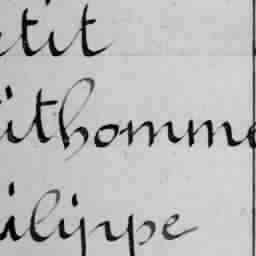 etit
ithomme
ilippe